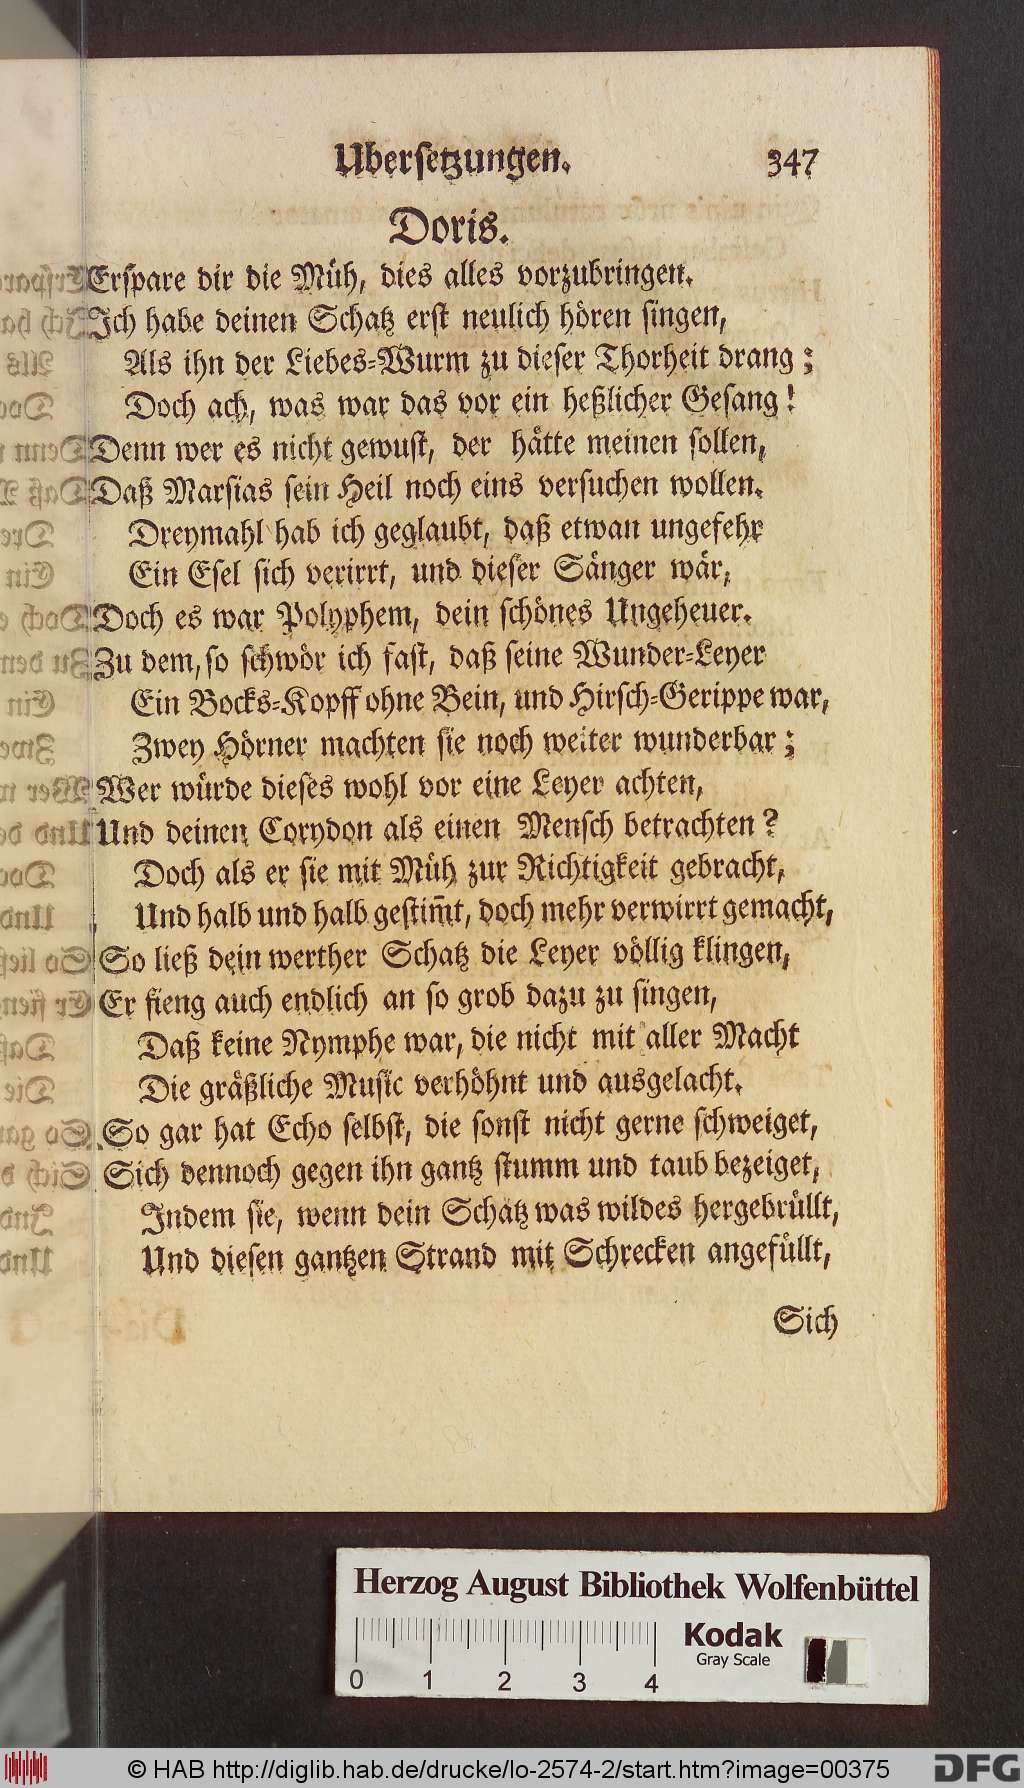 Ubersetzungen. 347
Doris.
Erspare dir die Müh, dies alles vorzubringen.
Ich habe deinen Schatz erst neulich hören singen,
Als ihn der Liebes-Wurm zu dieser Thorheit drang;
Doch ach, was war das vor ein heßlicher Gesang!
Denn wer es nicht gewust, der hätte meinen sollen,
Daß Marsias sein Heil noch eins versuchen wollen.
Dreymahl hab ich geglaubt, daß etwan ungefehr
Ein Esel sich verirrt, und dieser Sänger wär,
Doch es war Polyphem, dein schönes Ungeheuer.
Zu dem, so schwör ich fast, daß seine Wunder-Leyer
Ein Bocks-Kopff ohne Bein, und Hirsch-Gerippe war,
Zwey Hörner machten sie noch weiter wunderbar;
Wer würde dieses wohl vor eine Leyer achten,
Und deinen Corydon als einen Mensch betrachten?
Doch als er sie mit Müh zur Richtigkeit gebracht,
Und halb und halb gestim̄t, doch mehr verwirrt gemacht,
So ließ dein werther Schatz die Leyer völlig klingen,
Er fieng auch endlich an so grob dazu zu singen,
Daß keine Nymphe war, die nicht mit aller Macht
Die gräßliche Music verhöhnt und ausgelacht.
So gar hat Echo selbst, die sonst nicht gerne schweiget,
Sich dennoch gegen ihn gantz stumm und taub bezeiget,
Indem sie, wenn dein Schatz was wildes hergebrüllt,
Und diesen gantzen Strand mit Schrecken angefüllt,
Sich
Herzog August Bibliothek Wolfenbüttel
Kodak
Gray Scale
0 1 2 3 4
© HAB http://diglib.hab.de/drucke/lo-2574-2/start.htm?image=00375
DFG